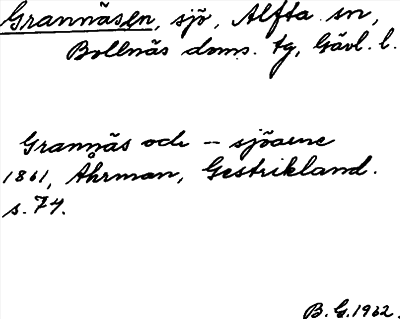 Grannäsen, sjö, Alfta sn,
Bollnäs doms. tg, Gävl. l.
Grannäs och -- sjöarne
1861, Åhrman, Gestrikland.
s. 74.
B. G. 1932.